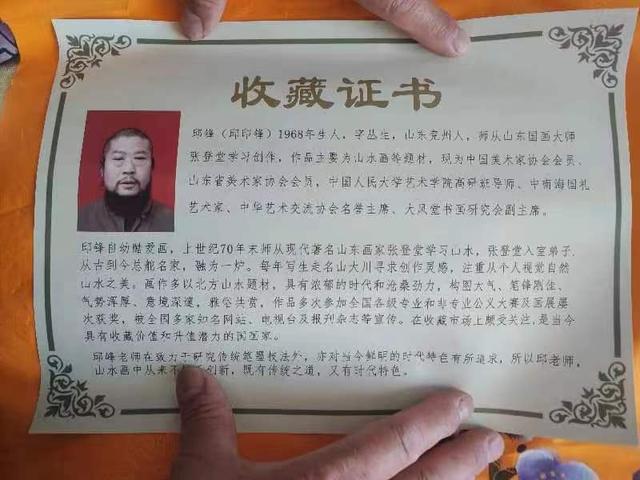 收藏证书
邱锋（邱印锋）1968年生人，字丛生，山东兖州人，师从山东国画大师
张登堂学习创作，作品主要为山水画等题材，现为中国美术家协会会员、
山东省美术家协会会员，中国人民大学艺术学院高研班导师、中南海国礼
艺术家、中华艺术交流协会名誉主席、大风堂书画研究会副主席。
邱锋自幼酷爱画，上世纪70年末师从现代著名山东画家张登堂学习山水，张登堂入室弟子，
从古到今总能名家，融为一炉。每年写生走名山大川寻求创作灵感，注重从个人视觉自然
山水之美。画作多以北方山水题材，具有浓郁的时代和沧桑劲力，构图大气、笔锋刚佳、
气势浑厚、意境深邃，雅俗共赏，作品多次参加全国各级专业和非专业公义大赛及画展屡
次获奖，被全国多家知名网站、电视台及报刊杂志等宣传。在收藏市场上颇受关注，是当今
具有收藏价值和升值潜力的国画家。
邱峰老师在致力于研究传统笔墨技法外，亦对当今鲜明的时代特色有所追求，所以邱老师，
山水画中从来不 创新，既有传统之道，又有时代特色。